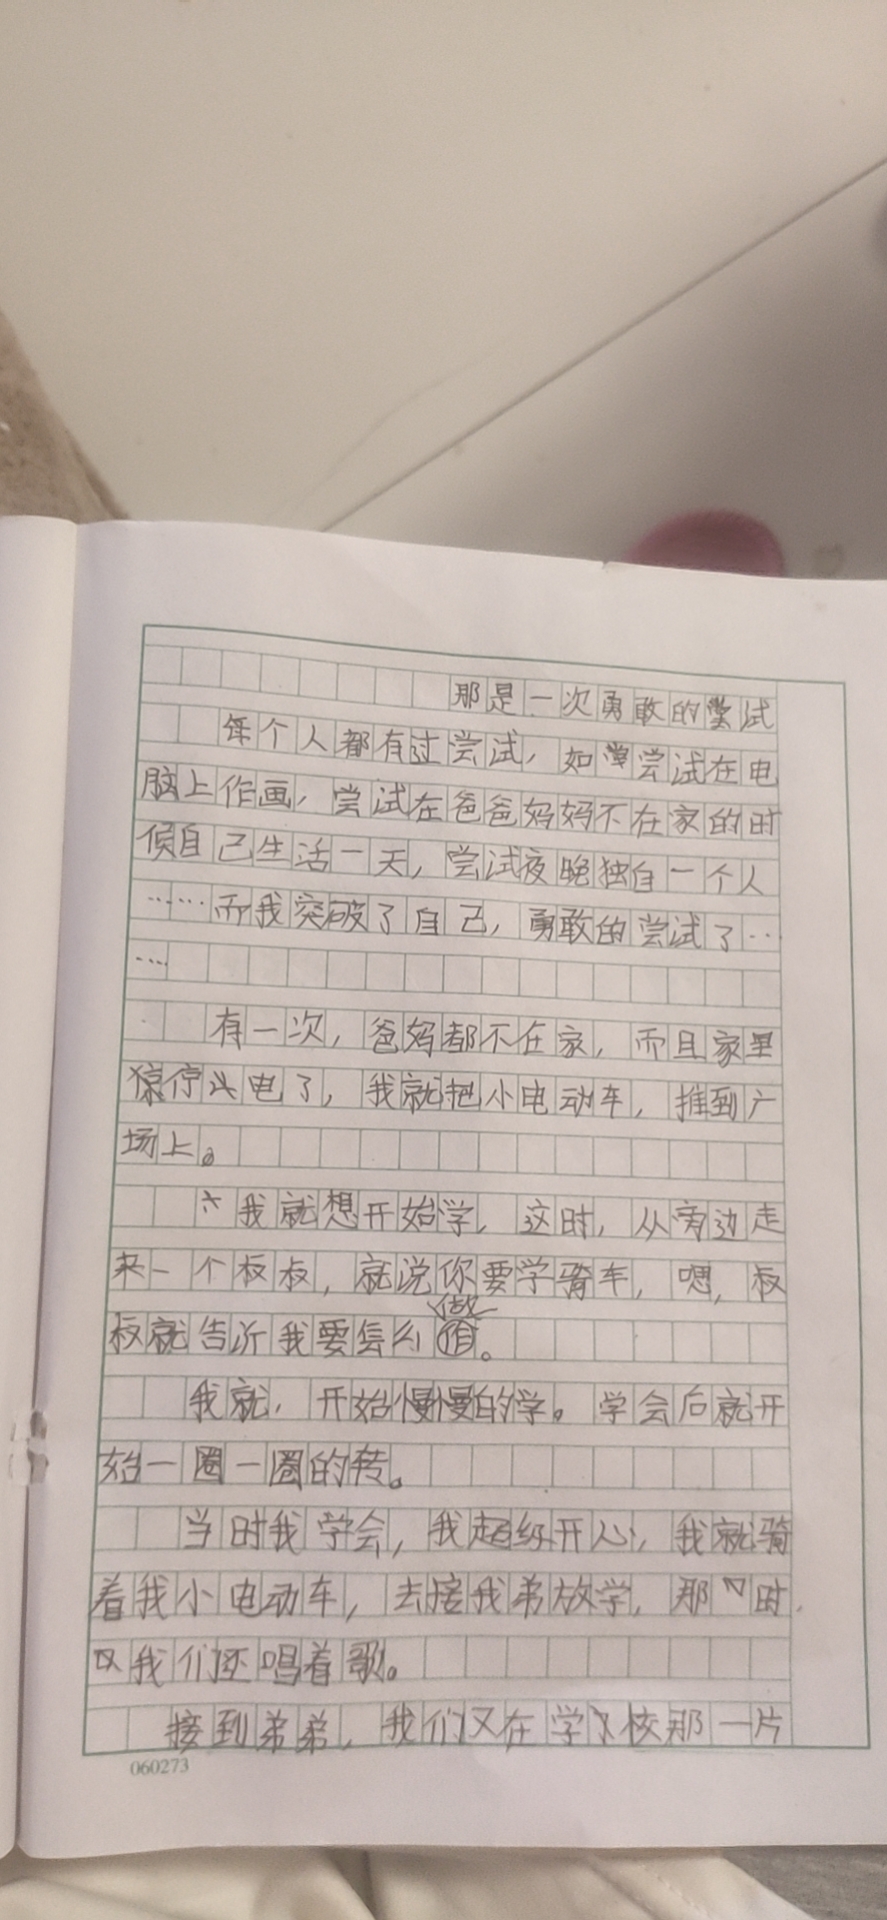 那是一次勇敢的尝试
每个人都有过尝试，如尝试在电
脑上作画，尝试在爸爸妈妈不在家的时
候自己生活一天，尝试夜晚独自一个人
……而我突破了自己，勇敢的尝试了…
…
有一次，爸妈都不在家，而且家里
停电了，我就把小电动车，推到广
场上。
我就想开始学，这时，从旁边走
来一个叔叔，就说你要学骑车，嗯，叔
做
叔就告诉我要怎么。
我就，开始慢慢的学。学会后就开
始一圈一圈的转。
当时我学会，我超级开心，我就骑
着我小电动车，去接我弟放学，那时
我们还唱着歌。
接到弟弟，我们又在学校那一片
060273